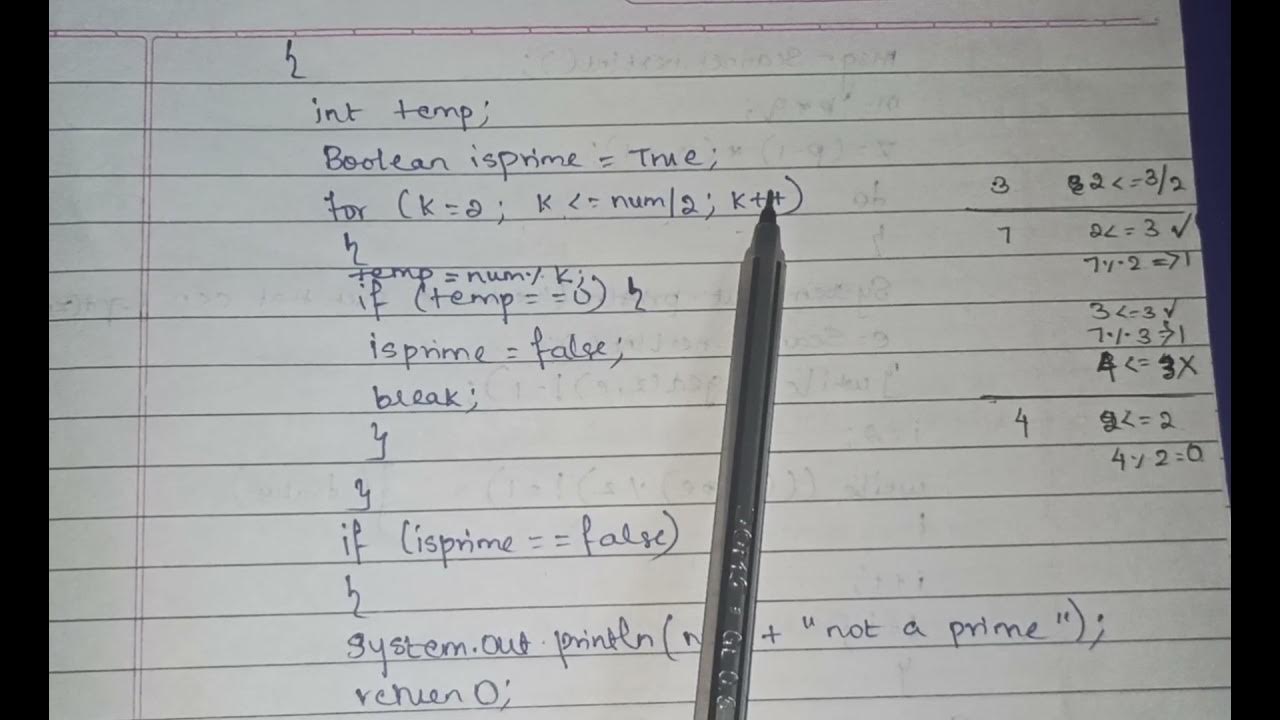 {
int temp;
Boolean isprime = True;
for (k=2; k<=num/2; k++)
{
temp = num % k;
if (temp == 0) {
isprime = false;
break;
}
}
if (isprime == false)
{
System.out.println(n + "not a prime");
return 0;
3 2<=3/2
7 2<=3 ✓
7%2 =>1
3<=3 ✓
7%3 =>1
4<=3 X
4 2<=2
4%2=0